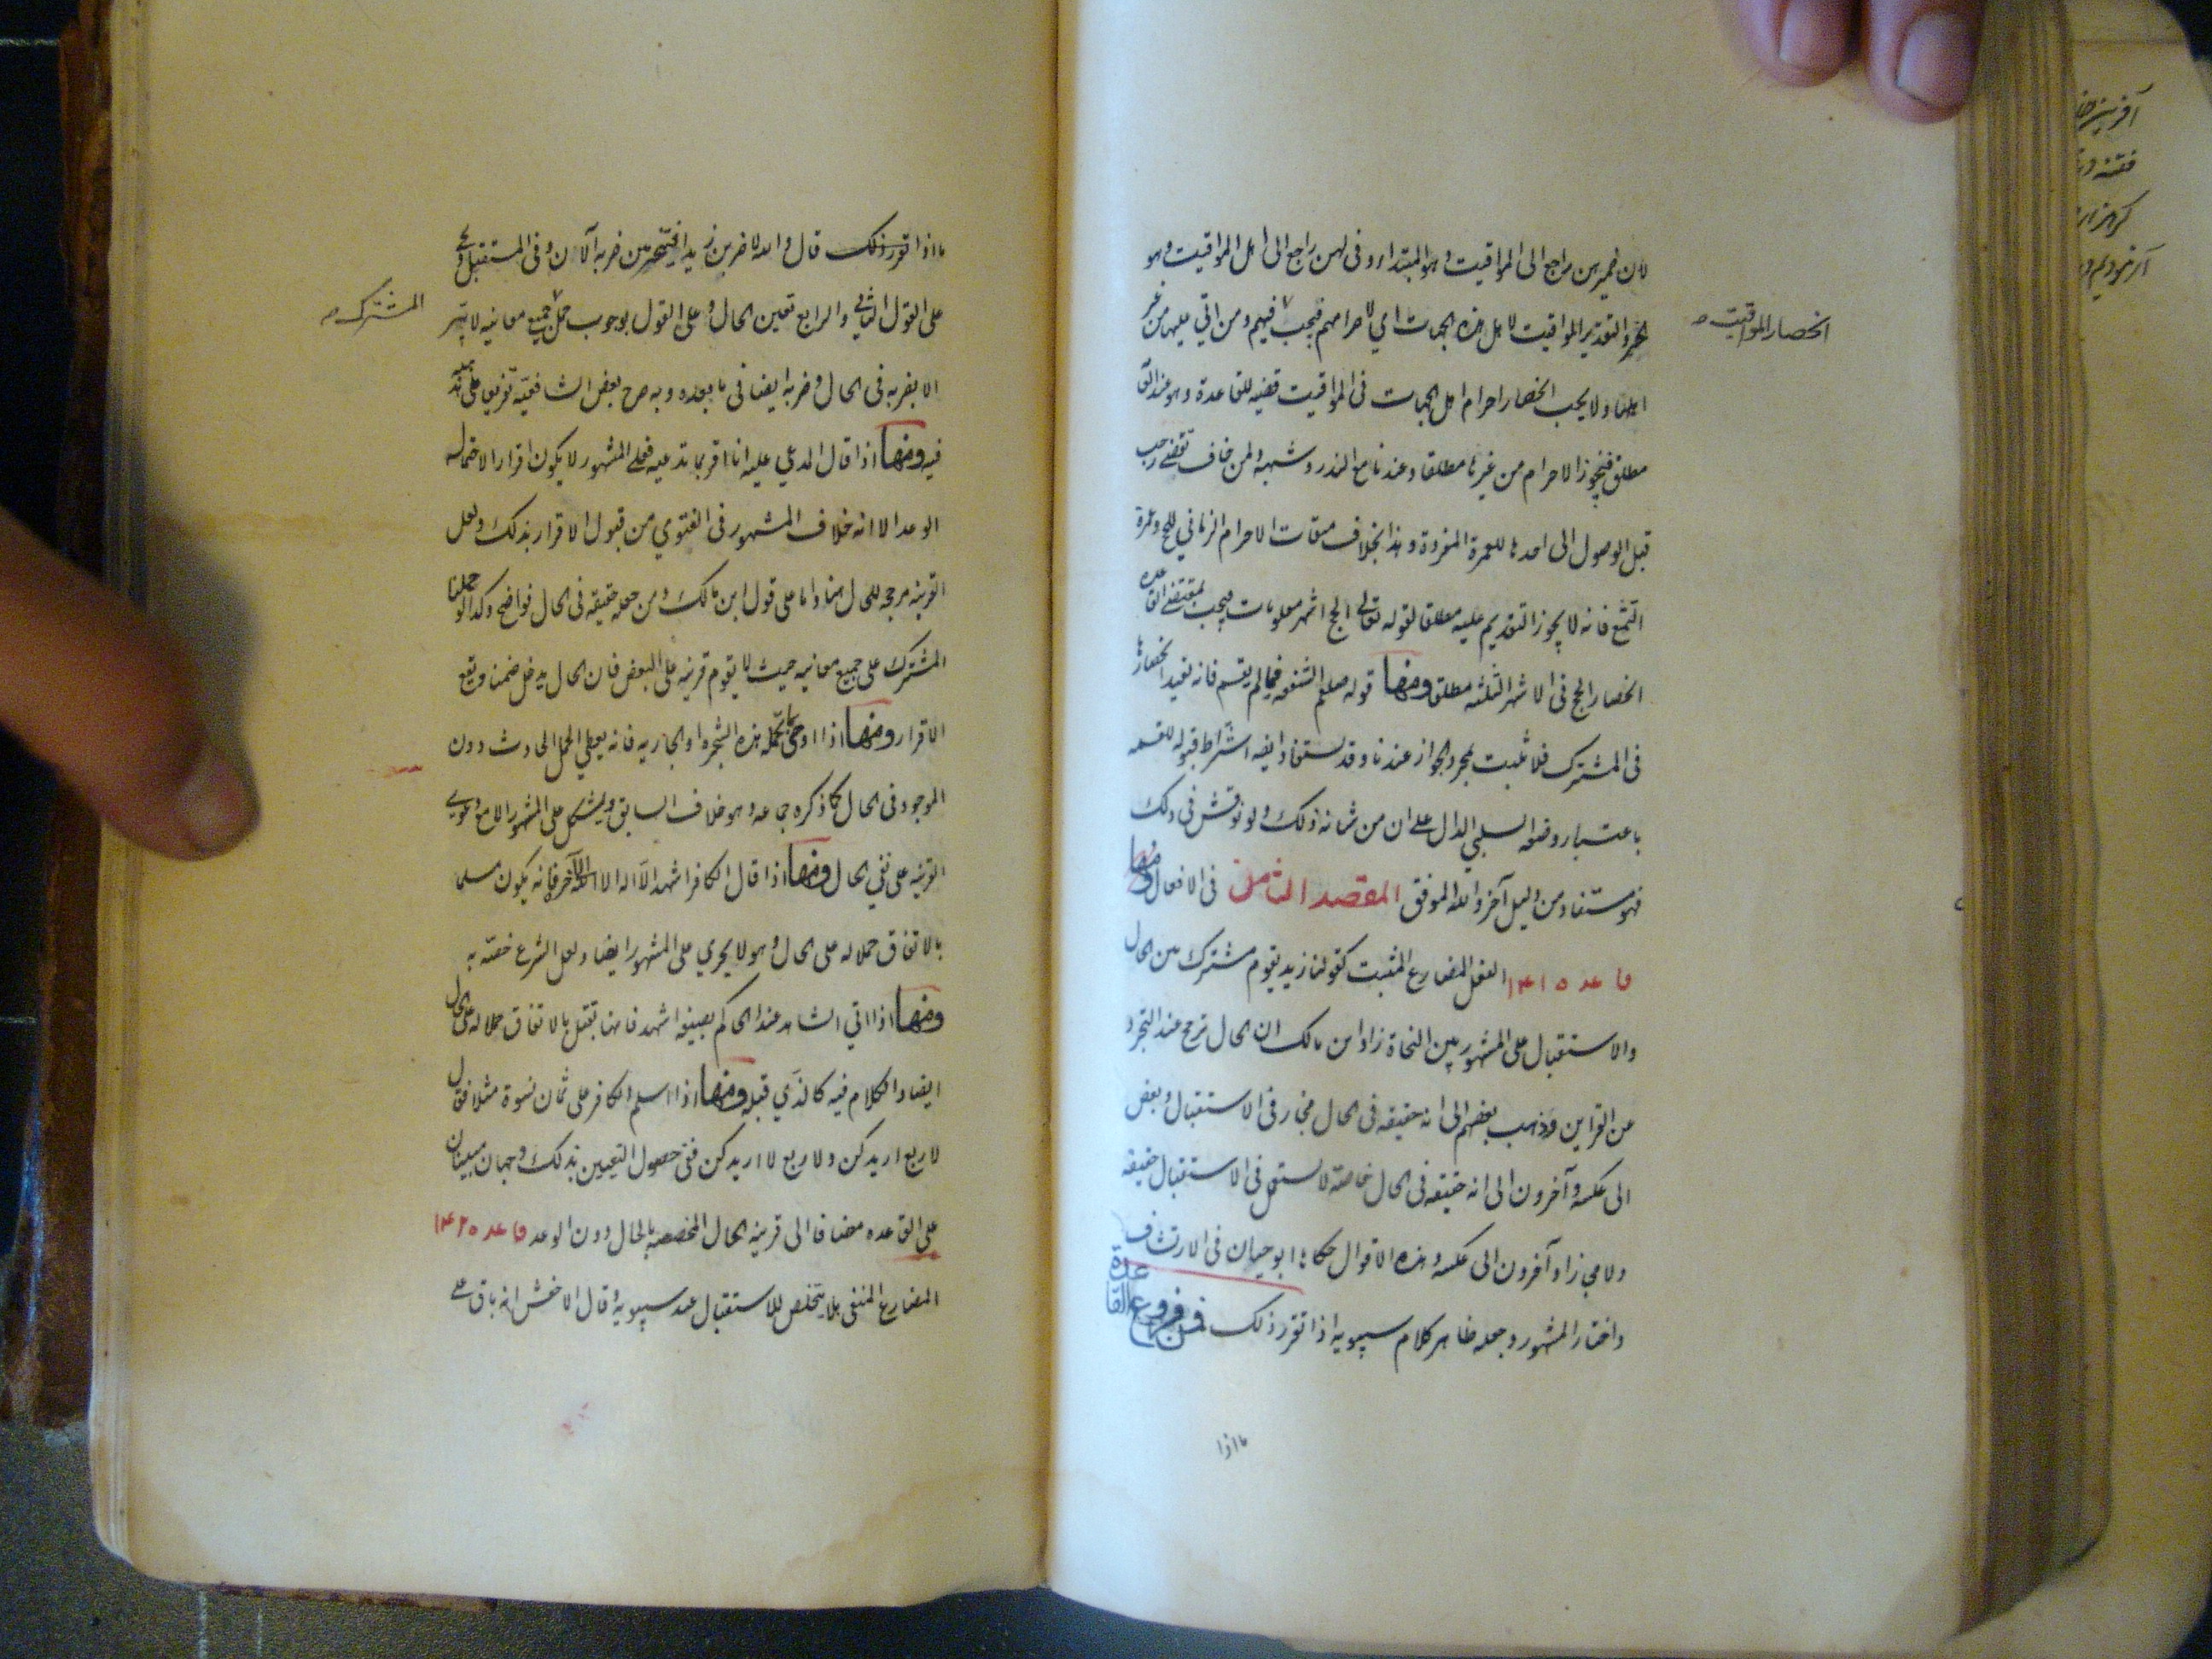 لان ضميرهن راجع الى المواقيت وهو المبتدا وفى لهن راجع الى اهل المواقيت وهو
الخبر والتقدير المواقيت لاهل هذه الجهات اي لاحرامهم فيجب فيهم ومن اتي عليهن من غير
انحصار المواقيت
اهلها ولا يجب انحصار احرام اهل الجهات فى المواقيت قضيه للقاعدة وهو عند
مطلق فيجوز الاحرام من غيرها مطلقا وعندنا مع النذر وشبهه ولمن خاف تقضى رجب
قبل الوصول الى احدها للعمرة المفردة وهذا بخلاف ميقات الاحرام الزماني للحج وعمرة
التمتع فانه لا يجوز التقديم عليه مطلقا لقوله تعالى الحج اشهر معلومات فيجب بمقتضى القاعده
انحصار الحج فى الاشهر الثلثه مطلق ومنها قوله صلعم الشفعه فيما لم يقسم فانه يفيد انحصارها
فى المشترك فلا تثبت بمجرد الجواز عندنا وقد يستفاد ايضه اشتراط قبوله للقسمه
باعتبار وصفه السلبي الدال على ان من شانه ذلك ولو نوقش فى ذلك
فهو مستفاد من دليل آخر والله الموفق المقصد الثامن فى الافعال ومنها
قاعده ١٤١ الفعل المضارع المثبت كقولنا زيد يقوم مشترك بين الحال
والاستقبال على المشهور بين النحاة زاد ابن مالك ان الحال ترجح عند التجرد
عن القراين وذهب بعضهم الى انه حقيقه فى الحال مجاز فى الاستقبال وبعض
الى عكسه وآخرون الى انه حقيقه فى الحال خاصة لا يستعمل فى الاستقبال حقيقه
ولا مجازا وآخرون الى عكسه وهذه الاقوال حكاها ابو حيان فى الارتشاف
واختار المشهور وجعله ظاهر كلام سيبويه اذا تقرر ذلك فمن فروع القاعدة
ما اذا
ما اذا تقرر ذلك قال والله لاضربن زيدا فيتخير بين ضربه الآن وفى المستقبل
على القول الثاني والرابع تعين الحال وعلى القول بوجوب حمل جميع معانيه لا يبر
المشترك
الا بضربه فى الحال وضربه ايضا فى ما بعده وبه صرح بعض الشافعيه تفريعا على
فيه ومنها اذا قال المدعي عليه انا اقر بما تدعيه فعلى المشهور لا يكون اقرارا لاحتماله
الوعد الا انه خلاف المشهور فى الفتوي من قبول الاقرار بذلك ولعل
القرينه مرجحه للحال هنا واما على قول ابن مالك ومن جعله حقيقه فى الحال فواضح وكذا لو حملنا
المشترك على جميع معانيه حيث لا يقوم قرينه على البعض فان الحال يدخل ضمنا ويقع
الاقرار ومنها اذا اوصى بما تحمله هذه الشجره او الجاريه فانه يعطي الحمل الحادث دون
الموجود فى الحال كما ذكره جماعه وهو خلاف السابق ويشكل على المشهور الا مع دعوى
القرينه على نفي الحال ومنها اذا قال الكافر اشهد الا اله الا الله الى آخره فانه يكون مسلما
بالاتفاق حملا له على الحال وهو لا يجري على المشهور ايضا ولعل الشرع خصته به
ومنها اذا اتي الشاهد عند الحاكم بصيغه اشهد فانها تقبل بالاتفاق حملا له على الحال
ايضا والكلام فيه كالذي قبله ومنها اذا اسلم الكافر على ثمان نسوة مثلا فقال
لاربع اريدكن ولاربع لا اريدكن ففى حصول التعيين بذلك وجهان مبنيان
على القاعده مضافا الى قرينه الحال المخصصه بالحال دون الوعد قاعده ١٤٢
المضارع المنفى بلا يتخلص للاستقبال عند سيبويه وقال الاخفش انه باق على